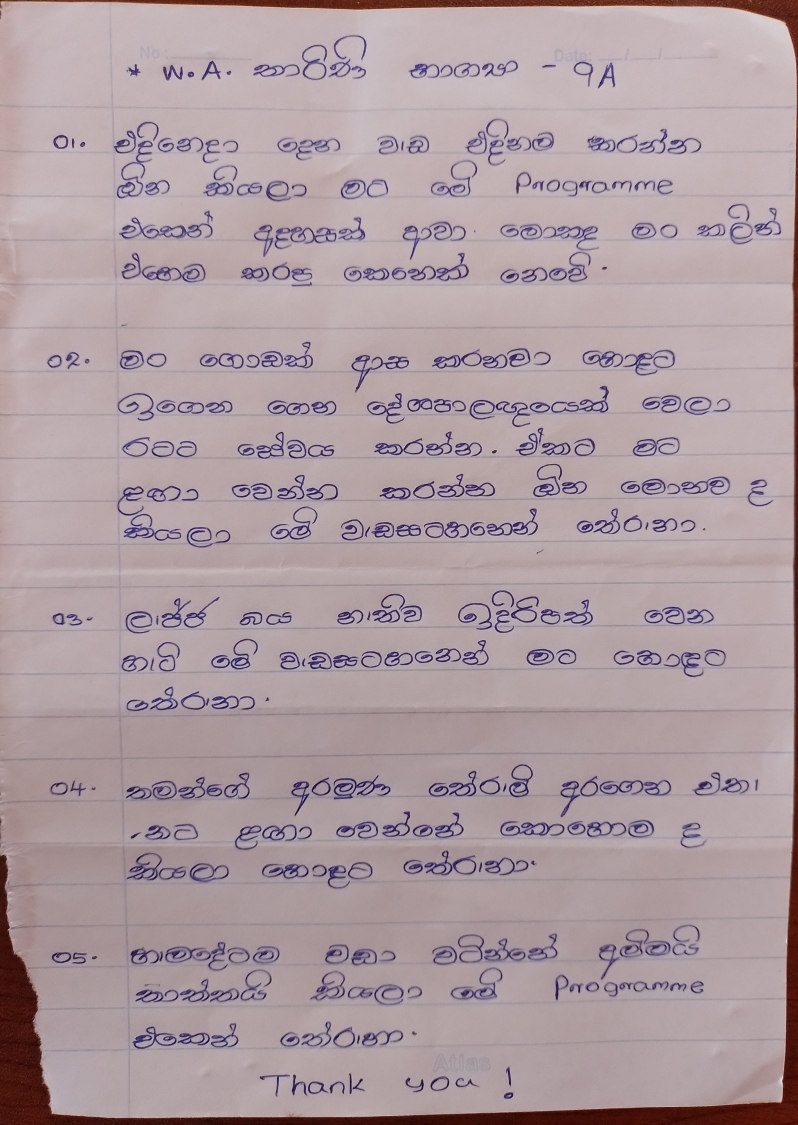 No :
Date: / /
* W.A. තාරිණි නාගසා - 9A
01. එදිනෙදා දෙන වැඩ එදිනම කරන්න
ඕන කියලා මට මේ Programme
එකෙන් අදහසක් ආවා. මොකද මං කලින්
එහෙම කරපු කෙනෙක් නෙවේ.
02. මං ගොඩක් ආස කරනවා හොඳට
ඉගෙන ගෙන දේශපාලඥයෙක් වෙලා
රටට සේවය කරන්න. ඒකට මට
ළඟා වෙන්න කරන්න ඕන මොනව ද
කියලා මේ වැඩසටහනෙන් තේරුනා.
03. ලැජ්ජ බය නැතිව ඉදිරිපත් වෙන
හැටි මේ වැඩසටහනෙන් මට හොඳට
තේරුනා.
04. තමන්ගේ අරමුණ තේරුම් අරගෙන ඒකට
ළඟා වෙන්නේ කොහොම ද
කියලා හොඳට තේරුනා.
05. හැමදේටම වඩා වටින්නේ අම්මයි
තාත්තයි කියලා මේ Programme
එකෙන් තේරුනා.
Atlas
Thank you !